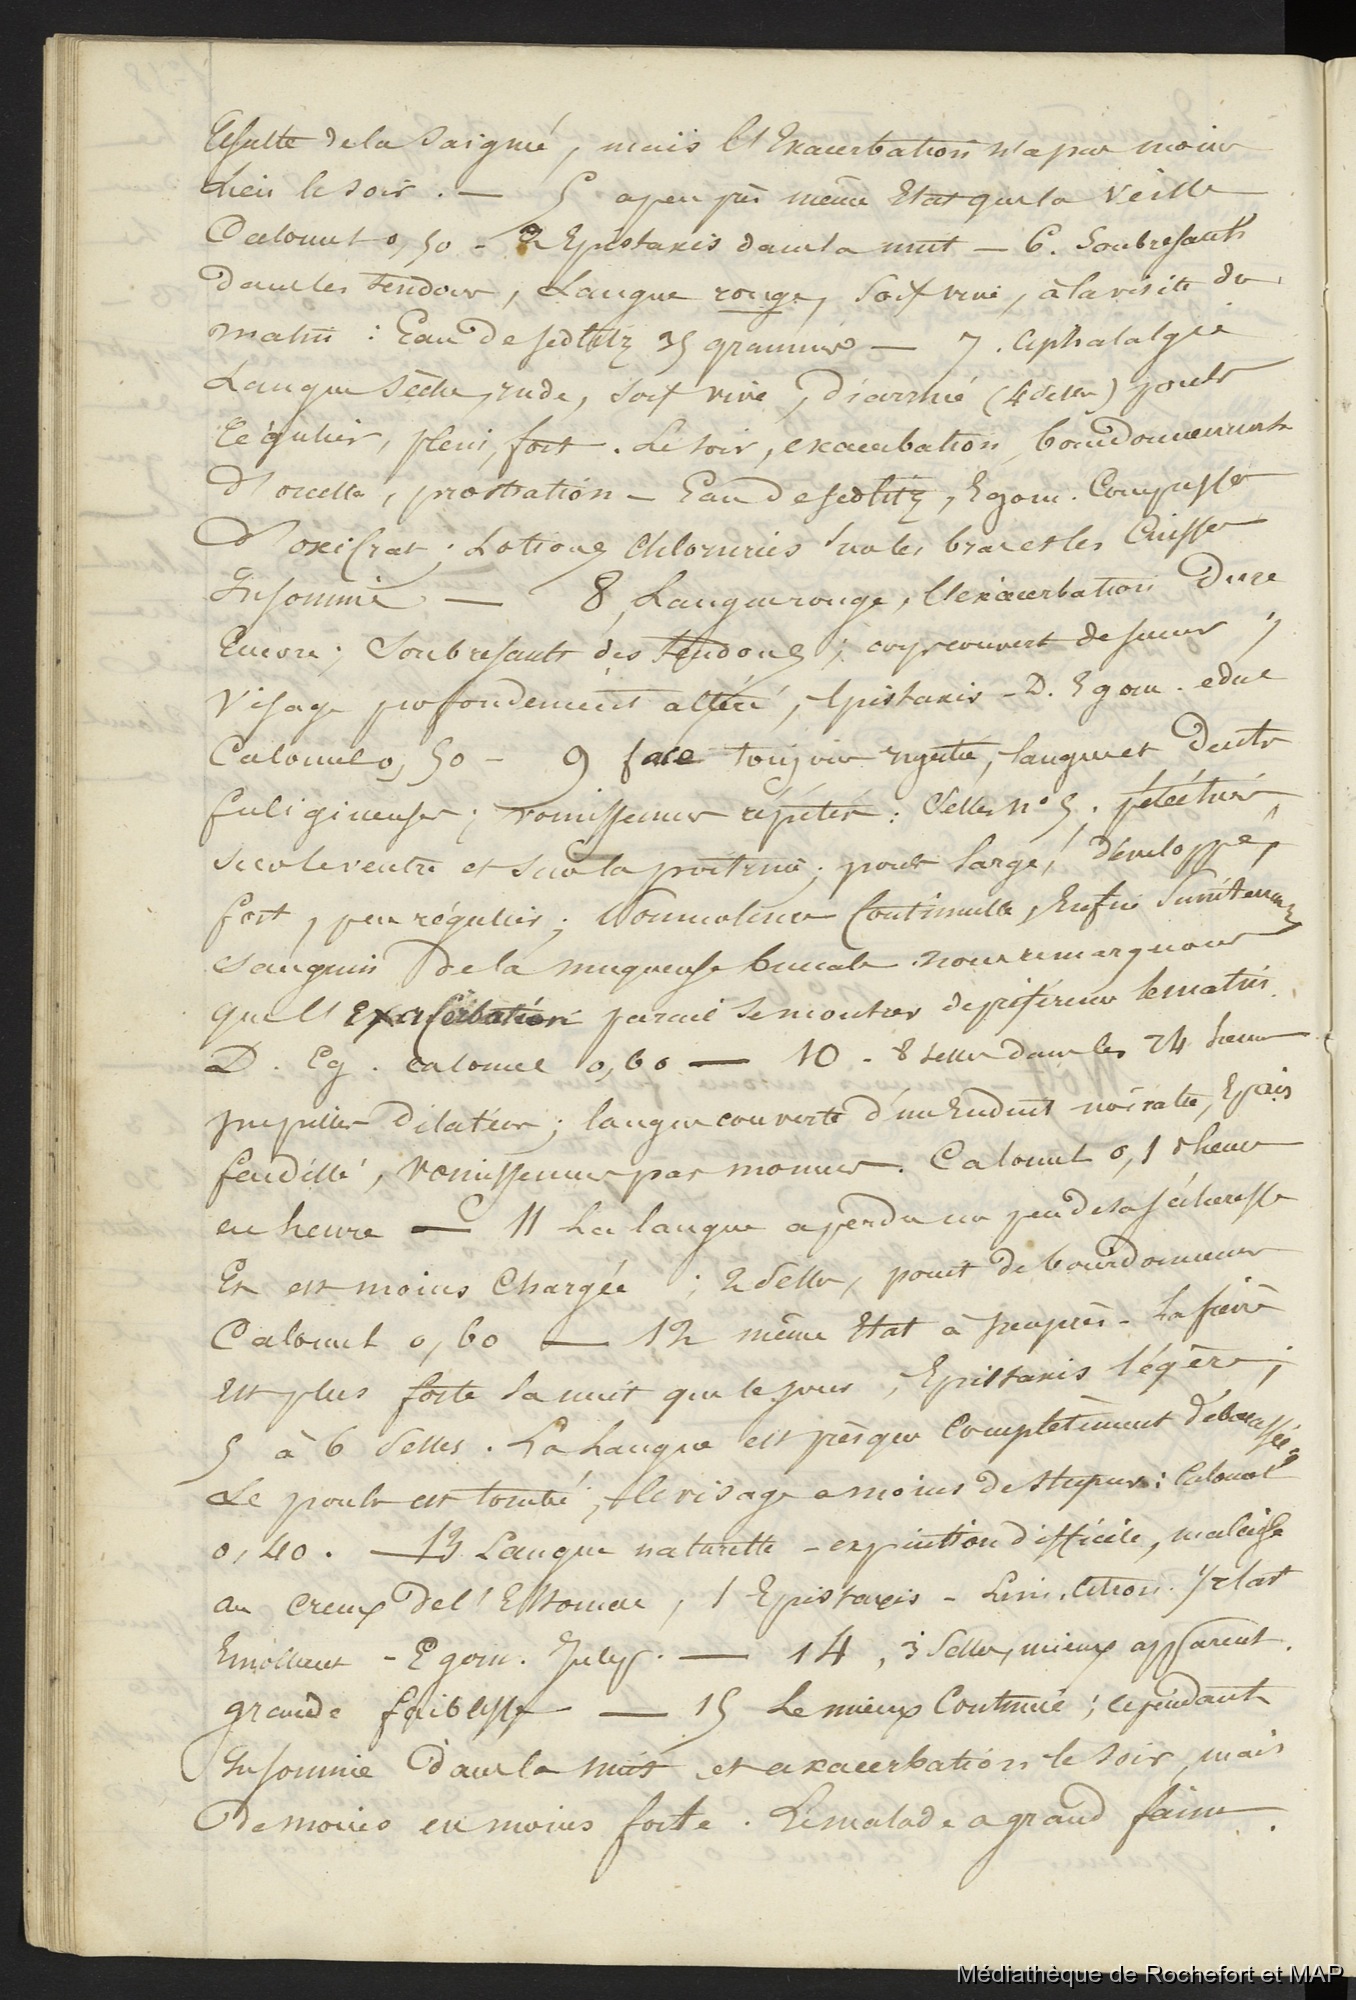 Résulte de la Saignée, mais l'Exacerbation n'a pas moins
Lieu le soir. — 5 apeuprès même Etat que la Veille
Calomel 0,50 - 2 Epistaxis dans la nuit — 6. Soubresauts
dans les tendons, Langue rouge, soif vive, à la visite du
matin : Eau de sedlitz 35 grammes — 7. Céphalalgie
Langue sèche, rude, soif vive, diarrhée (4 selles) pouls
régulier, plein, fort. Le soir, exacerbation, bourdonnements
d'oreilles, prostration - Eau de sedlitz, Egom. Compresses
d'oxicrat ; Lotions Chlorurées sur les bras et les Cuisses
Insomnie — 8, Langue rouge, l'exacerbation dure
Encore ; Soubresauts des tendons ; corps couvert de sueur ;
Visage profondément altéré, Epistaxis - D. Egom. edul
Calomel 0,50 - 9 face toujours injectée, langue et dents
fuligineuses ; vomissemens répétés : Selles n° 5. pétéchies
sur le ventre et sur la poitrine ; pouls large, développé,
fort, peu régulier ; Somnolence Continuelle, Enfin Suintemens
sanguin de la muqueuse buccale. nous remarquons
que l'Exacerbation parait se montrer de préférence le matin.
D. Eg. calomel 0,60 — 10 - 8 selles dans les 24 heures
pupilles dilatées ; langue couverte d'un Enduit noiratre, Epais
fendillé, vomissemens par momens. Calomel 0,1 d'heure
en heure — 11 La langue a perdu un peu de sa sécheresse
Et est moins Chargée ; 2 Selles, point de bourdonnemens
Calomel 0,60 — 12 même Etat à peuprès - La fièvre
est plus forte la nuit que le jour, Epistaxis légère ;
5 à 6 Selles. La Langue est presque Complètement débarassée
Le pouls est tombé, le visage a moins de stupeur : Calomel
0,40. — 13 Langue naturelle - expuition difficile, malaise
au Creux de l'Estomac, 1 Epistaxis - Lim. Citron.
Emollient - Egom. Julep. — 14, 3 Selles, mieux apparent.
grande faiblesse — 15 Le mieux Continue ; cependant
Insomnie dans la nuit et exacerbation le soir, mais
de moins en moins forte. Le malade a grand faim.
Médiathèque de Rochefort et MAP